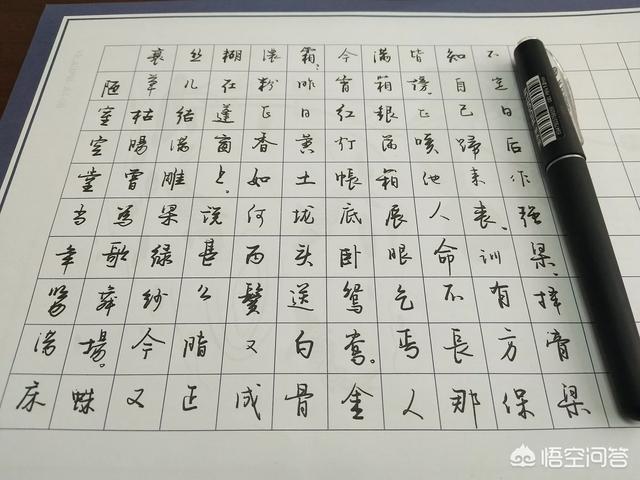 陋室空堂当年笏满床
衰草枯陽曾為歌舞場。蛛
絲儿结满雕梁绿纱今又
糊在蓬窗上。说甚么脂正
濃粉正香如何两鬓又成
霜。昨日黄土垅头送白骨
今宵红灯帳底卧鸳鸯。金
满箱銀满箱展眼乞丐人
皆谤。正嘆他人命不長那
知自己歸来丧。訓有方保
不定日后作强梁。择膏粱
悟空问答